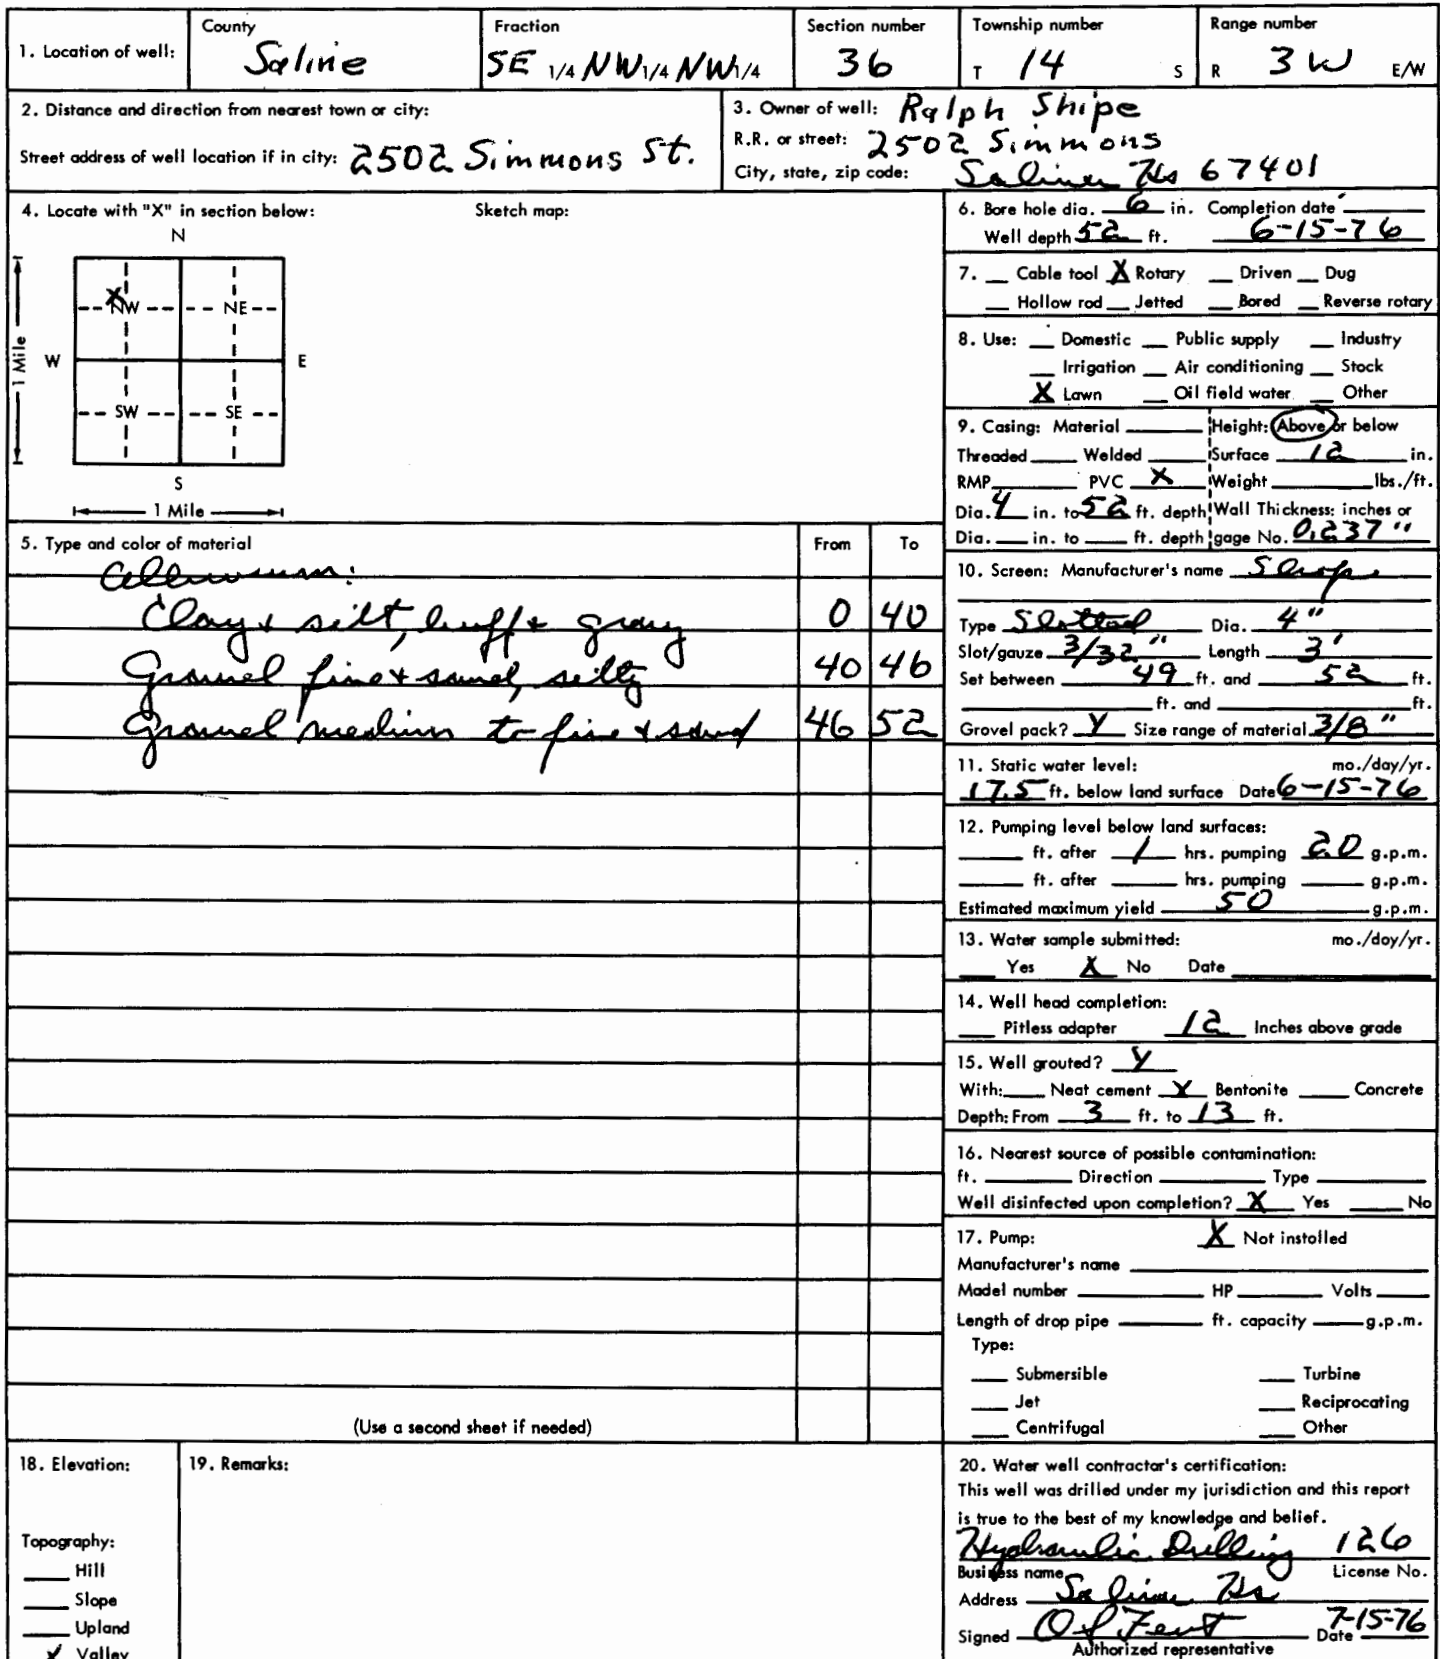 1. Location of well:
County Saline
Fraction SE 1/4 NW 1/4 NW 1/4
Section number 36
Township number T 14 S
Range number R 3W E/W
2. Distance and direction from nearest town or city:
Street address of well location if in city: 2502 Simmons St.
3. Owner of well: Ralph Shipe
R.R. or street: 2502 Simmons
City, state, zip code: Salina Ks 67401
4. Locate with "X" in section below: Sketch map:
N
X
NW NE
W E
1 Mile
SW SE
S
1 Mile
5. Type and color of material From To
Alluvium:
Clay & silt, buff & gray 0 40
Gravel fine & sand, silty 40 46
Gravel medium to fine & sand 46 52
(Use a second sheet if needed)
6. Bore hole dia. 6 in. Completion date
Well depth 52 ft. 6-15-76
7. Cable tool X Rotary Driven Dug
Hollow rod Jetted Bored Reverse rotary
8. Use: Domestic Public supply Industry
Irrigation Air conditioning Stock
X Lawn Oil field water Other
9. Casing: Material Height: Above or below
Threaded Welded Surface 12 in.
RMP PVC X Weight lbs./ft.
Dia. 4 in. to 52 ft. depth Wall Thickness: inches or
Dia. in. to ft. depth gage No. 0.237"
10. Screen: Manufacturer's name Shop
Type Slotted Dia. 4"
Slot/gauze 3/32" Length 3'
Set between 49 ft. and 52 ft.
ft. and ft.
Gravel pack? Y Size range of material 3/8"
11. Static water level: mo./day/yr.
17.5 ft. below land surface Date 6-15-76
12. Pumping level below land surfaces:
ft. after 1 hrs. pumping 20 g.p.m.
ft. after hrs. pumping g.p.m.
Estimated maximum yield 50 g.p.m.
13. Water sample submitted: mo./day/yr.
Yes X No Date
14. Well head completion:
Pitless adapter 12 Inches above grade
15. Well grouted? Y
With: Neat cement X Bentonite Concrete
Depth: From 3 ft. to 13 ft.
16. Nearest source of possible contamination:
ft. Direction Type
Well disinfected upon completion? X Yes No
17. Pump: X Not installed
Manufacturer's name
Model number HP Volts
Length of drop pipe ft. capacity g.p.m.
Type:
Submersible Turbine
Jet Reciprocating
Centrifugal Other
18. Elevation:
Topography:
Hill
Slope
Upland
✓ Valley
19. Remarks:
20. Water well contractor's certification:
This well was drilled under my jurisdiction and this report
is true to the best of my knowledge and belief.
Hydraulic Drilling 126
Business name License No.
Address Salina Ks
Signed O S Fent Date 7-15-76
Authorized representative